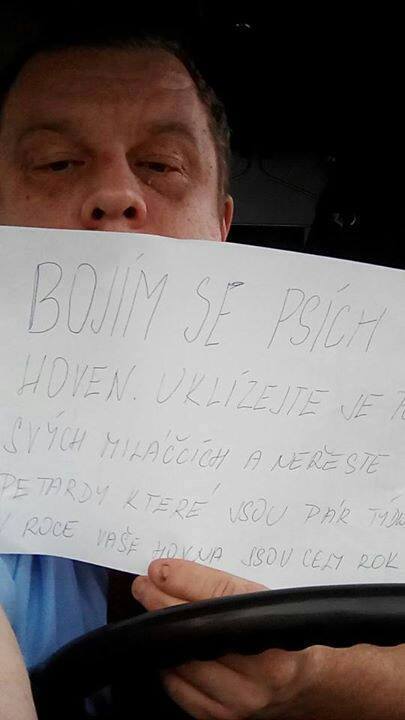 BOJÍM SE PSÍCH
HOVEN. UKLÍZEJTE JE
SVÝCH MILÁČCÍCH A NEŘEŠTE
PETARDY KTERÉ JSOU PÁR
V ROCE VAŠE HOVNA JSOU CELÝ ROK